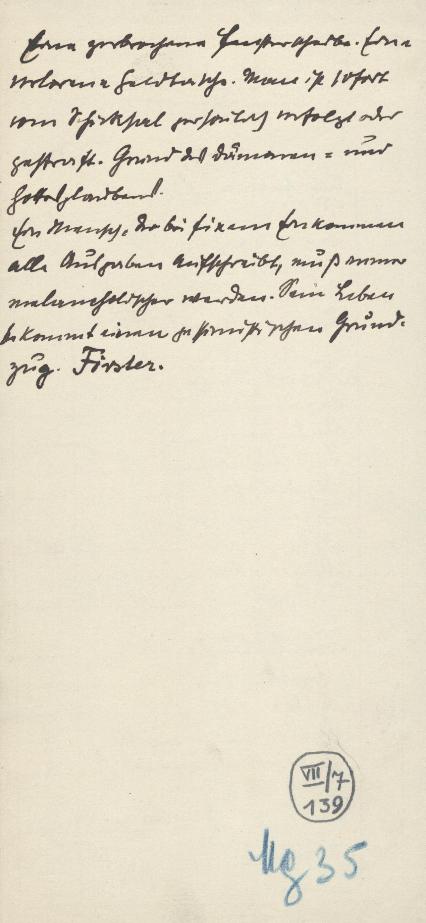 Eine zerbrochene Fensterscheibe. Eine
verlorene Geldtasche. Man ist sofort
vom Schicksal persönlich verfolgt oder
gestraft. Grund des Dämonen = und
Gottesglaubens.
Ein Mensch, der bei fixem Einkommen
alle Ausgaben aufschreibt, muß immer
melancholischer werden. Sein Leben
bekommt einen pessimistischen Grund-
zug. Förster.
VII/7
139
Mg 35